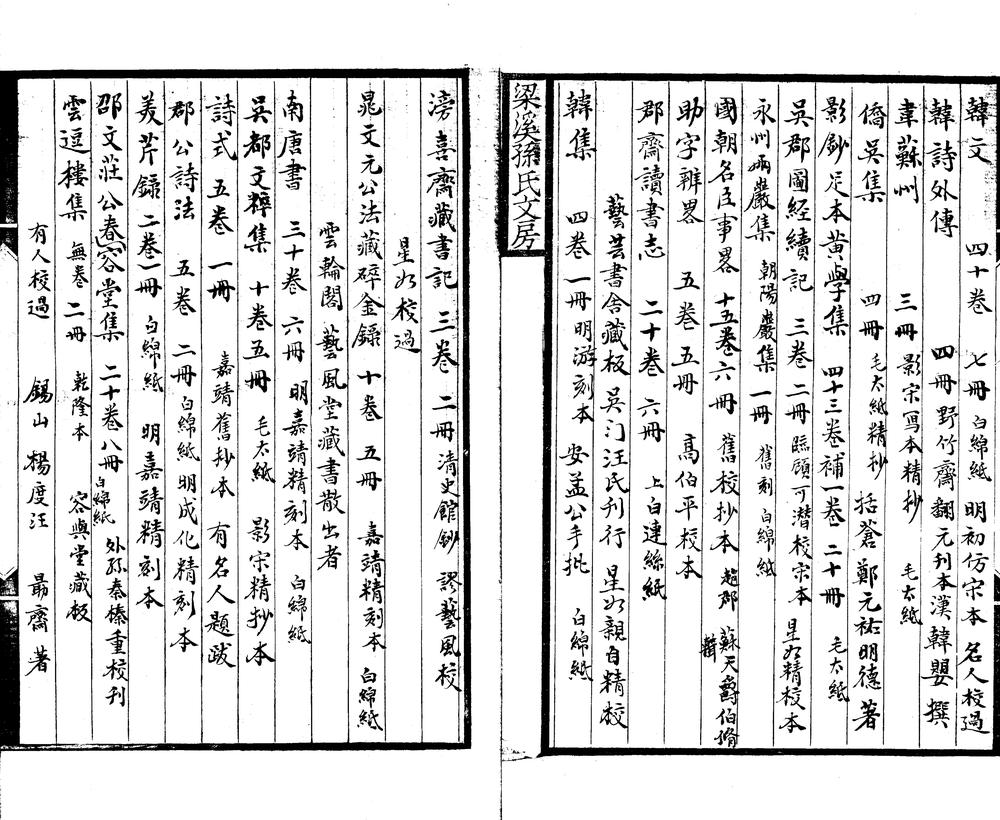 韓文 四十卷 七冊 白綿紙 明初仿宋本 名人校過
韓詩外傳 四冊 野竹齋翻元刊本 漢韓嬰撰
韋蘇州 三冊 影宋寫本精抄 毛太紙
僑吳集 四冊 毛太紙精抄 括蒼鄭元祐明德著
影鈔足本黄學集 四十三卷補一卷 二十冊 毛太紙
吳郡圖經續記 三卷 二冊 臨顧可潛校宋本 星如精校本
永州兩巖集 朝陽巖集 一冊 舊刻 白綿紙
國朝名臣事畧 十五卷六冊 舊校抄本 趙郡 蘇天爵伯脩輯
助字辨畧 五卷 五冊 高伯平校本
郡齋讀書志 二十卷 六冊 上白連絲紙
藝芸書舍藏板 吳门汪氏刊行 星如親自精校
韓集 四卷 一冊 明游刻本 安孟公手批 白綿紙
梁溪孫氏文房
滂喜齋藏書記 三卷 二冊 清史館鈔 謬藝風校
星如校過
晁文元公法藏碎金錄 十卷 五冊 嘉靖精刻本 白綿紙
雲輪閣 藝風堂藏書散出者
南唐書 三十卷 六冊 明嘉靖精刻本 白綿紙
吳都文粹集 十卷五冊 毛太紙 影宋精抄本
詩式 五卷 一冊 嘉靖舊抄本 有名人題跋
郡公詩法 五卷 二冊 白綿紙 明成化精刻本
美芹錄 二卷一冊 白綿紙 明嘉靖精刻本
邵文莊公春容堂集 二十卷八冊 白綿紙 外孫秦榛重校刊
雲逗樓集 無卷 二冊 乾隆本 容與堂藏板
有人校過 錫山 楊度汪 勗齋著